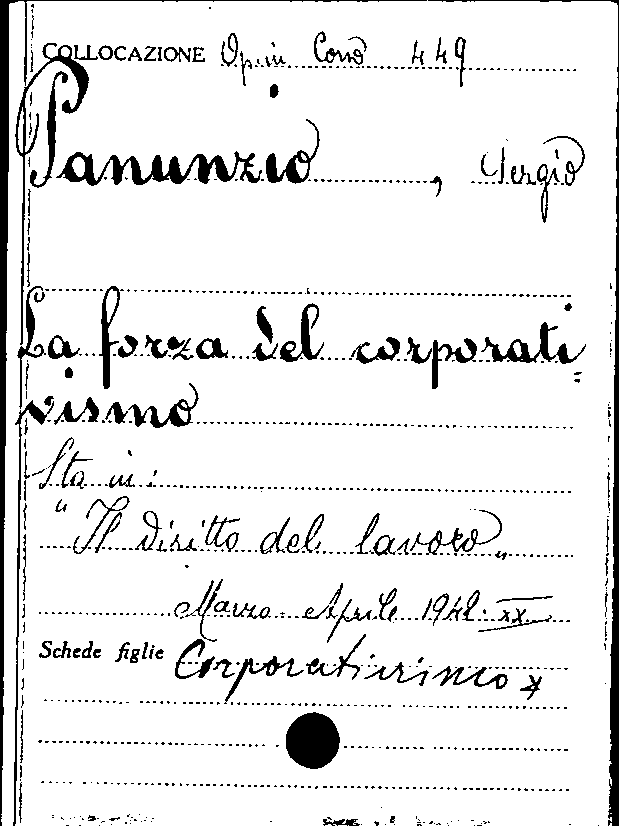 COLLOCAZIONE Opusc Corp 449
Panunzio, Sergio
La forza del corporati=
vismo
Sta in:
"Il diritto del lavoro„
Marzo-Aprile 1942-XX
Schede figlie Corporativismo *